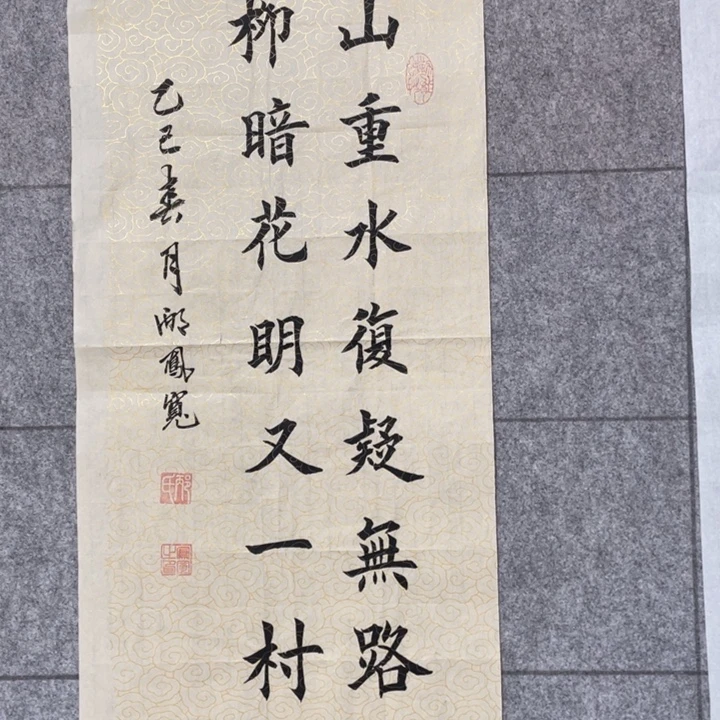 山重水復疑無路
柳暗花明又一村
乙巳春月 鳳寬